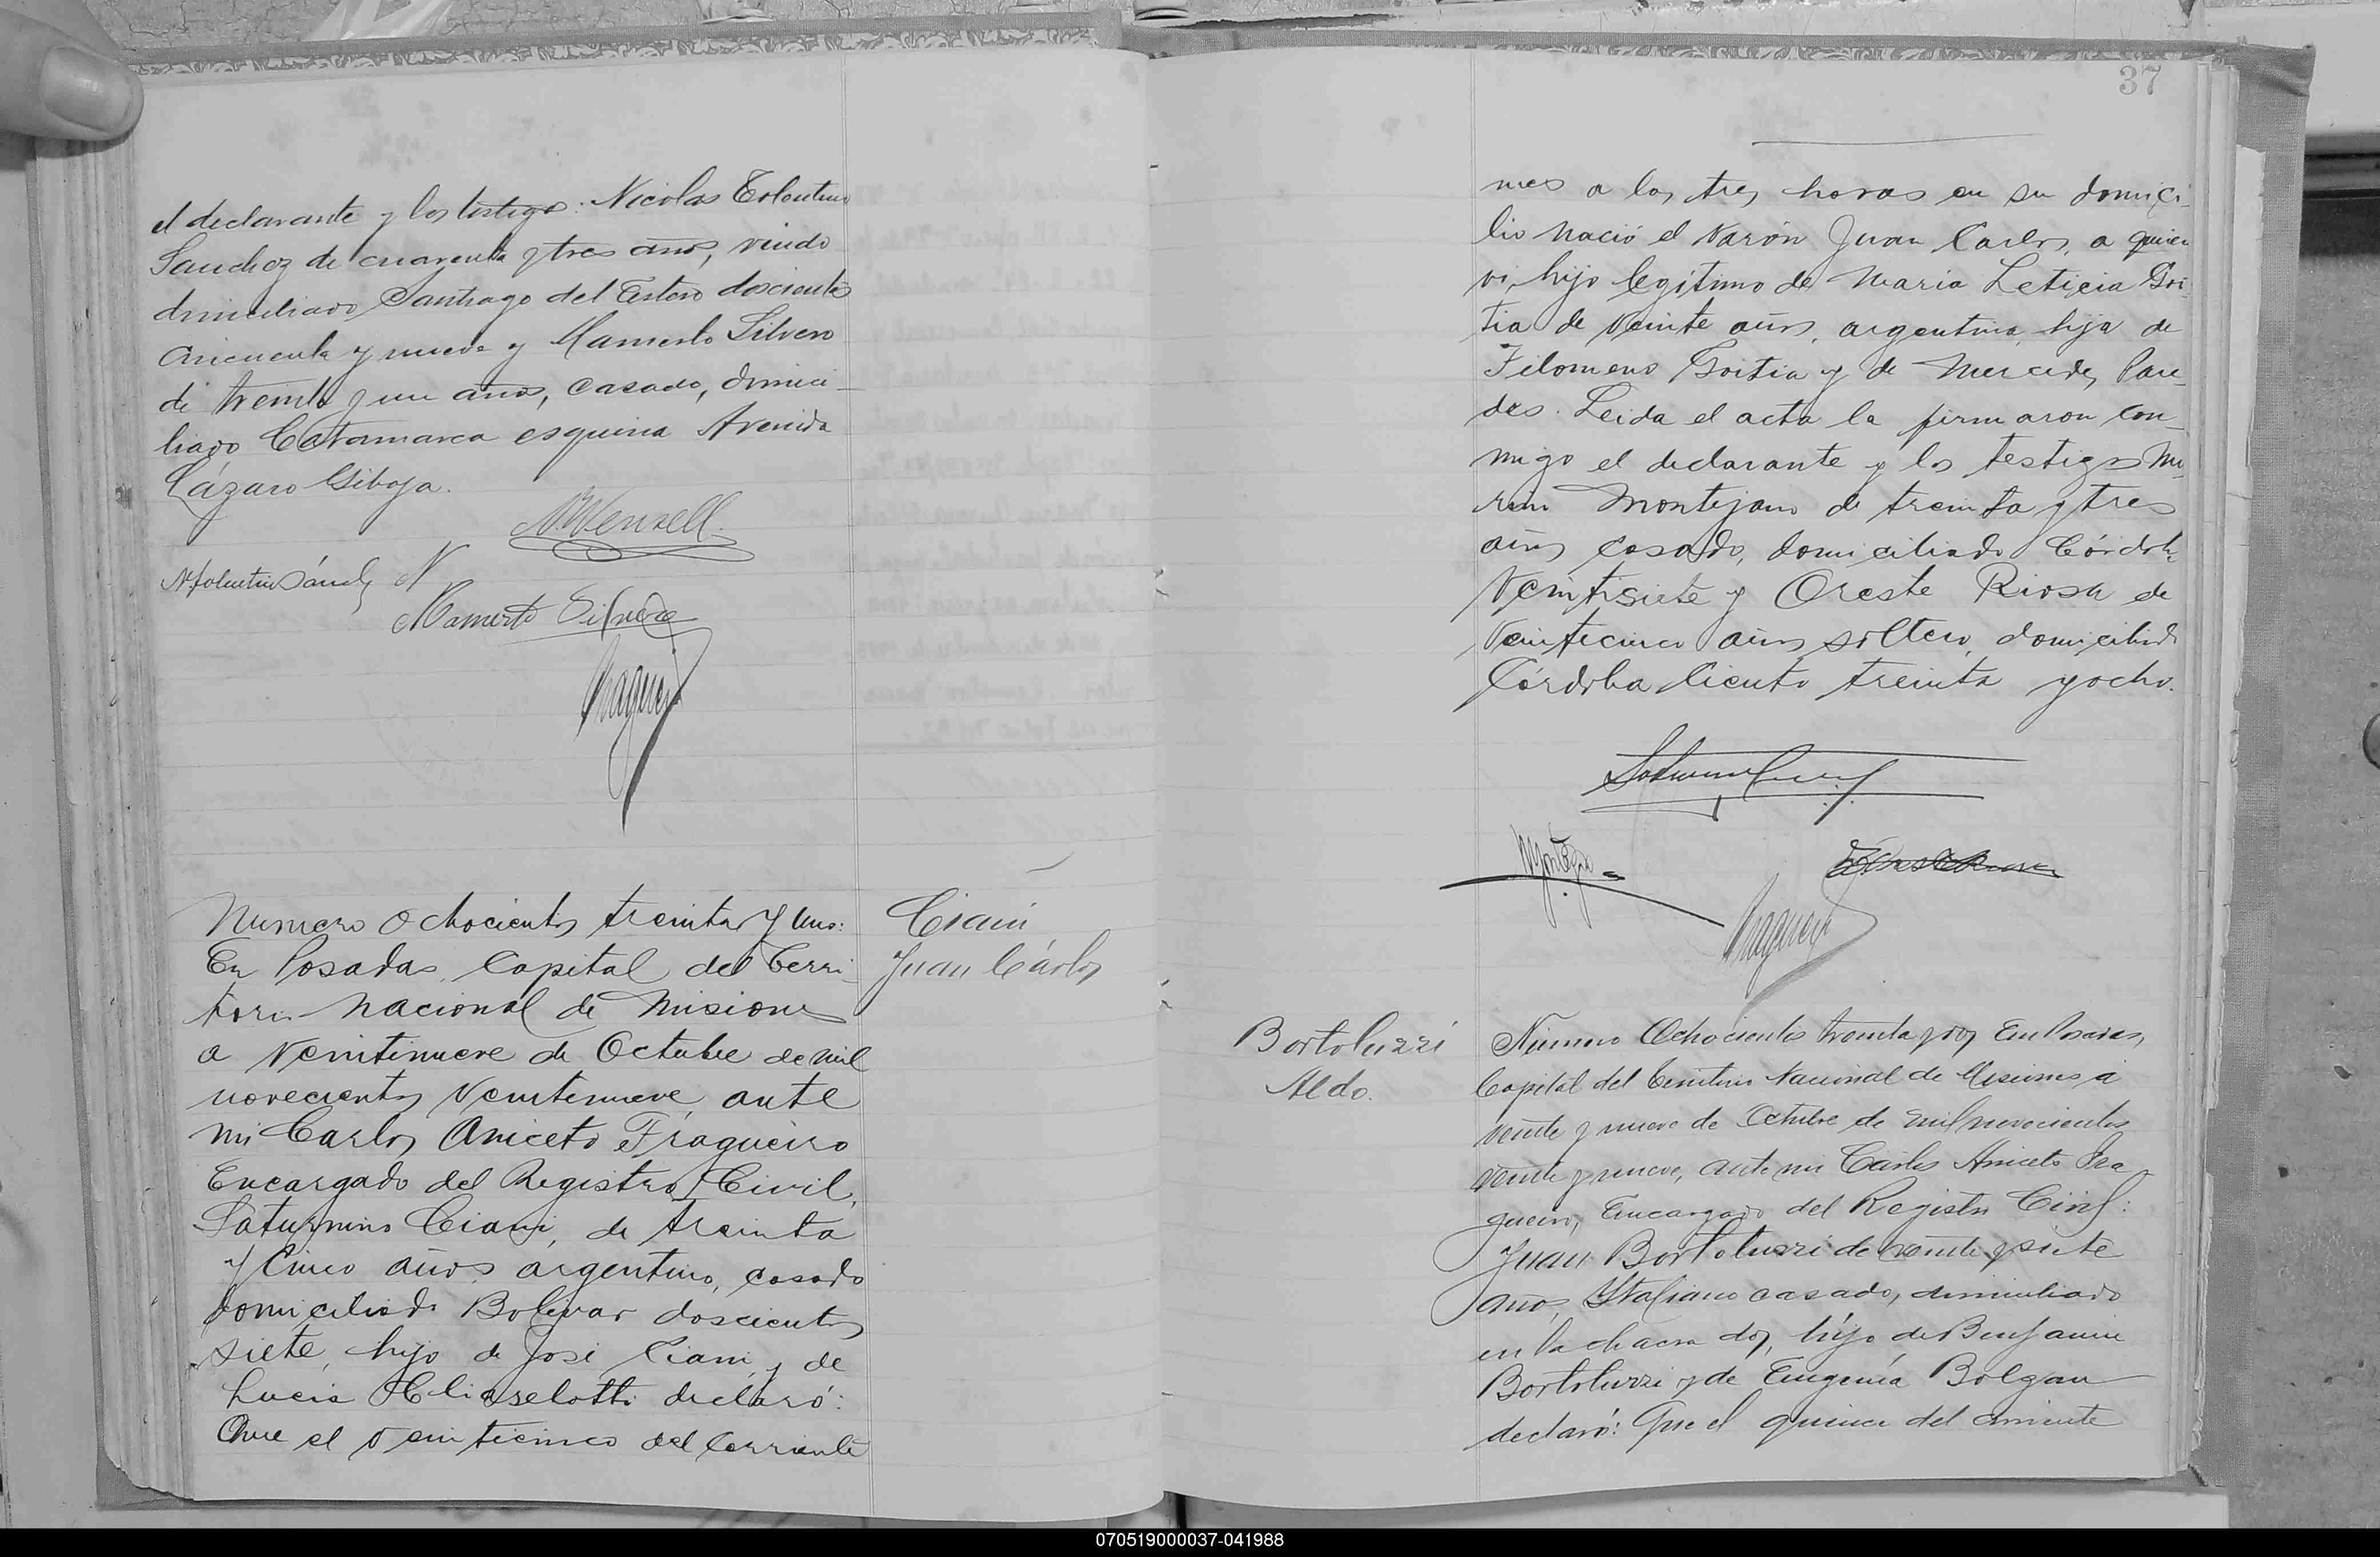 el declarante y los testigos: Nicolas Tolentino
Sanchez de cuarenta y tres años, viudo
domiciliado Santiago del Estero doscientos
cincuenta y nueve y Mamerto Silvero
de treinta y un años, casado, domici-
liado Catamarca esquina Avenida
Lázaro Giboja.
N. Tolentino Sánchez
N
Mamerto Silvero
Numero Ochocientos treinta y uno:
En Posadas, Capital del Terri-
torio Nacional de Misiones
a Veintinueve de Octubre de mil
novecientos Veintenueve, ante
mi Carlos Aniceto Fragueiro
Encargado del Registro Civil,
Saturnino Ciani, de treinta
y Cinco años, argentino, casado
domiciliado Bolivar doscientos
siete, hijo de José Ciani y de
Lucia declaró:
Que el veinticinco del Corriente
Ciani
Juan Cárlos
37
mes a las tres horas en su domici-
lio nació el Varón Juan Carlos, a quien
vi, hijo legítimo de Maria Leticia Goi-
tia de Veinte años, argentina, hija de
Filomeno Goitia y de Mercedes Pare-
des. Leida el acta la firmaron con-
migo el declarante y los testigos
Montejano de treinta y tres
años casado, domiciliado Córdoba
Veintisiete y Oreste Riosa de
Veinticinco años soltero, domiciliado
Córdoba Ciento treinta y ocho.
Bortoluzzi
Aldo.
Número Ochocientos treinta y dos En Posadas,
Capital del Territorio Nacional de Misiones a
veinte y nueve de Octubre de mil novecientos
veinte y nueve, ante mi Carlos Aniceto Fra-
gueiro, Encargado del Registro Civil:
Juan Bortoluzzi de veinte y siete
años, Italiano casado, domiciliado
en la chacra dos, hijo de Benjamin
Bortoluzzi y de Eugenia Bolzan
declaró: Que el quince del corriente
070519000037-041988